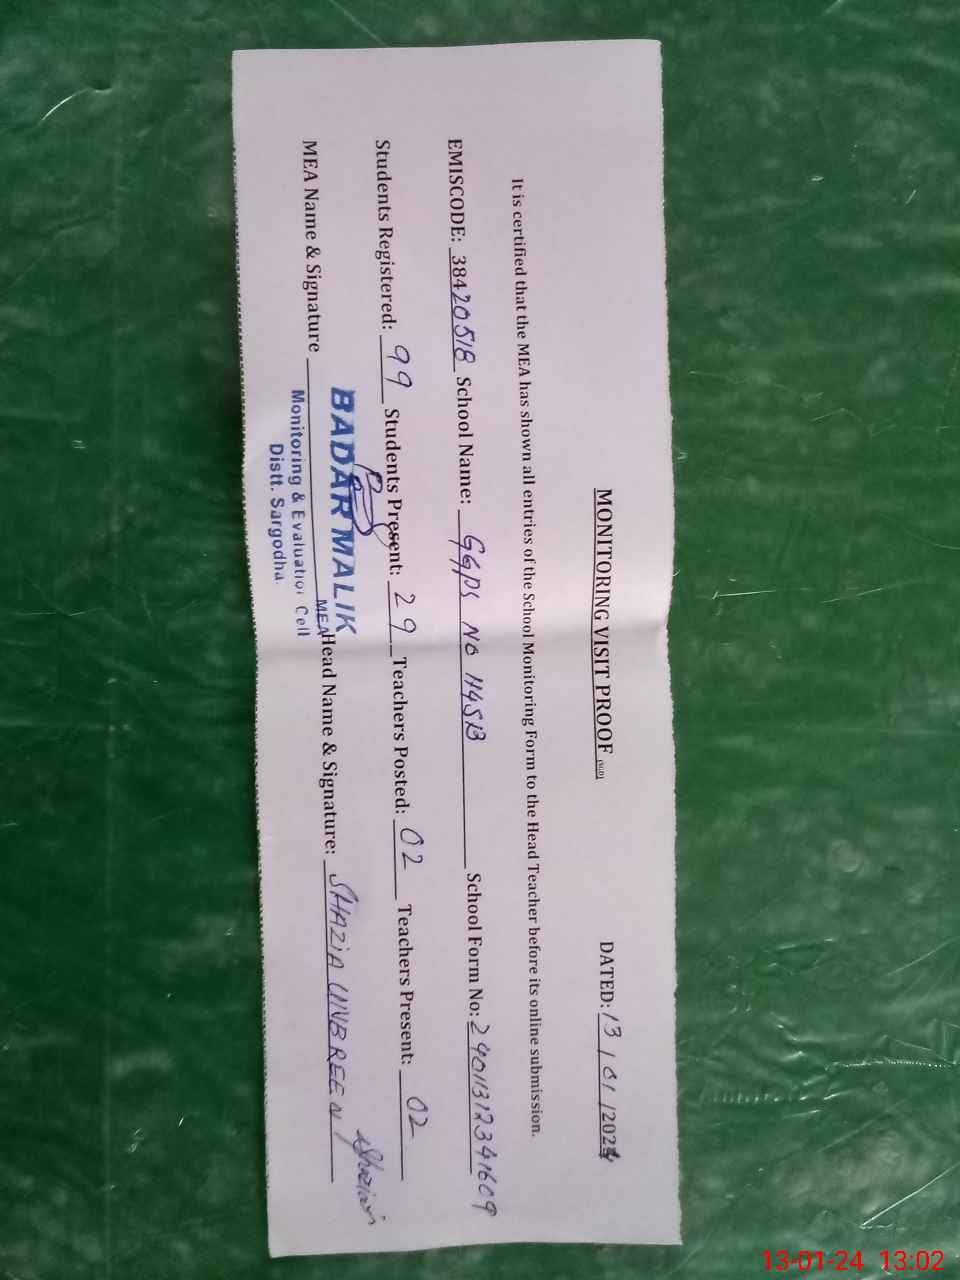 MONITORING VISIT PROOF (SGD)
DATED: 13 / 01 / 2024
It is certified that the MEA has shown all entries of the School Monitoring Form to the Head Teacher before its online submission.
EMISCODE: 38420518 School Name: GGPS NO 114SB School Form No: 24011312341609
Students Registered: 99 Students Present: 29 Teachers Posted: 02 Teachers Present: 02
MEA Name & Signature Head Name & Signature: SHAZIA UNBREEN
BADAR MALIK
MEA
Monitoring & Evaluation Cell
Distt. Sargodha.
Shazia
13-01-24 13:02